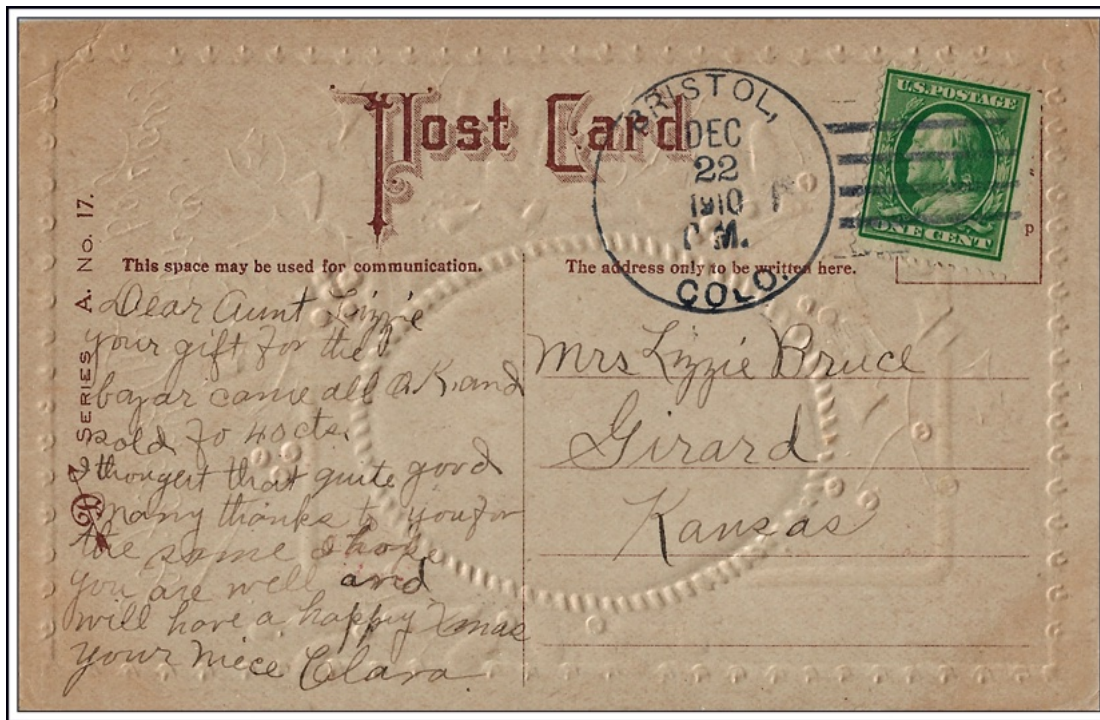 Post Card
BRISTOL,
DEC
22
1910
P.M.
COLO.
U.S. POSTAGE
ONE CENT
SERIES A. No. 17.
This space may be used for communication.
The address only to be written here.
Dear Aunt Lizzie
your gift for the
bazar came all O.K. and
sold fo 40cts.
I thought that quite good
many thanks to you for
the same I hope
you are well and
will have a happy Xmas
your niece Clara
Mrs Lizzie Bruce
Girard
Kansas